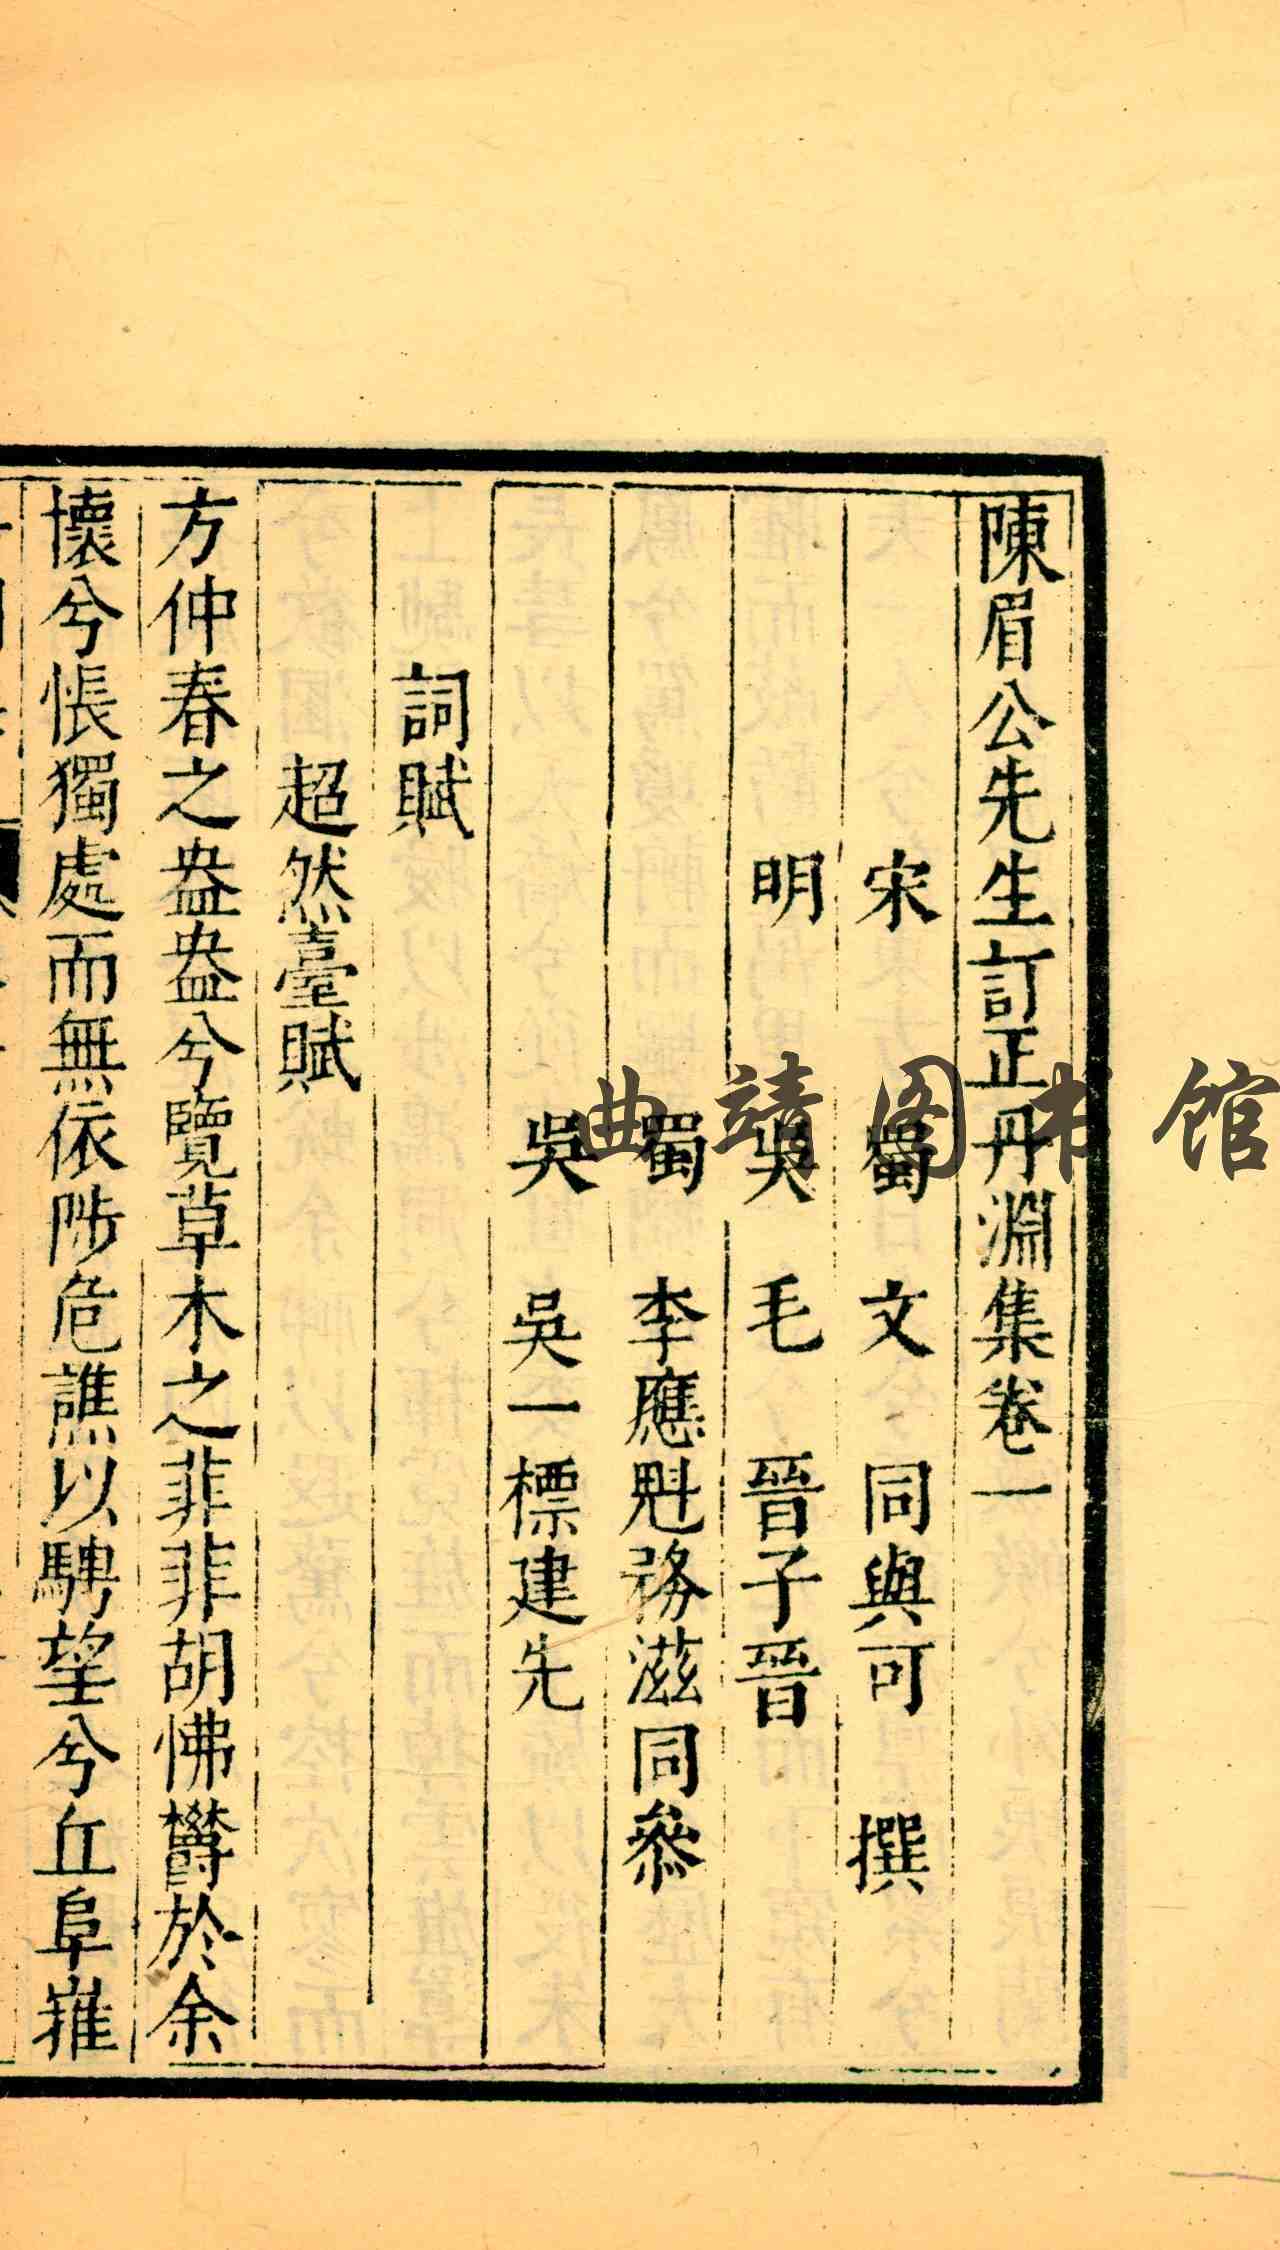 陳眉公先生訂正丹淵集卷一
宋　蜀　文　同與可　撰
明　吳　毛　晉子晉
蜀　李應魁務滋同叅
吳　吳一標建先
詞賦
超然臺賦
方仲春之盎盎兮覽草木之菲菲胡怫欝於余
懷兮悵獨處而無依陟危譙以騁望兮丘阜嶊
曲靖图书馆